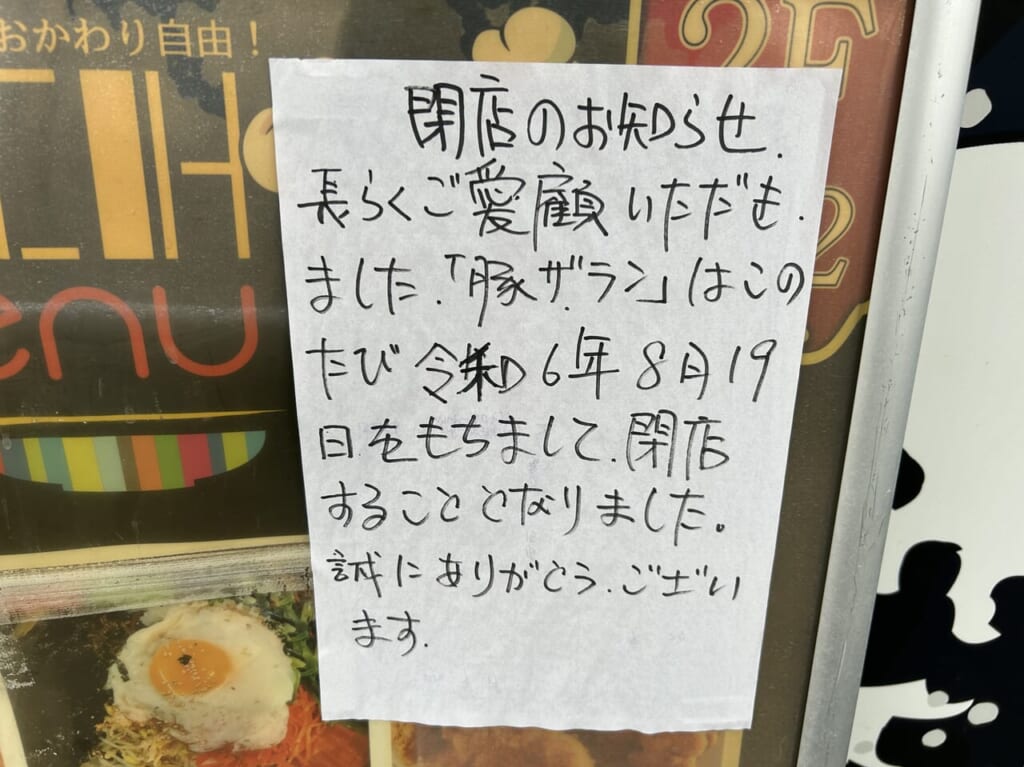 おかわり自由！
2F
enu
閉店のお知らせ.
長らくご愛顧いただき.
ました.「豚ザ.ラン」はこの
たび令和6年8月19
日をもちまして.閉店
することとなりました。
誠にありがとう.ござい
ます.